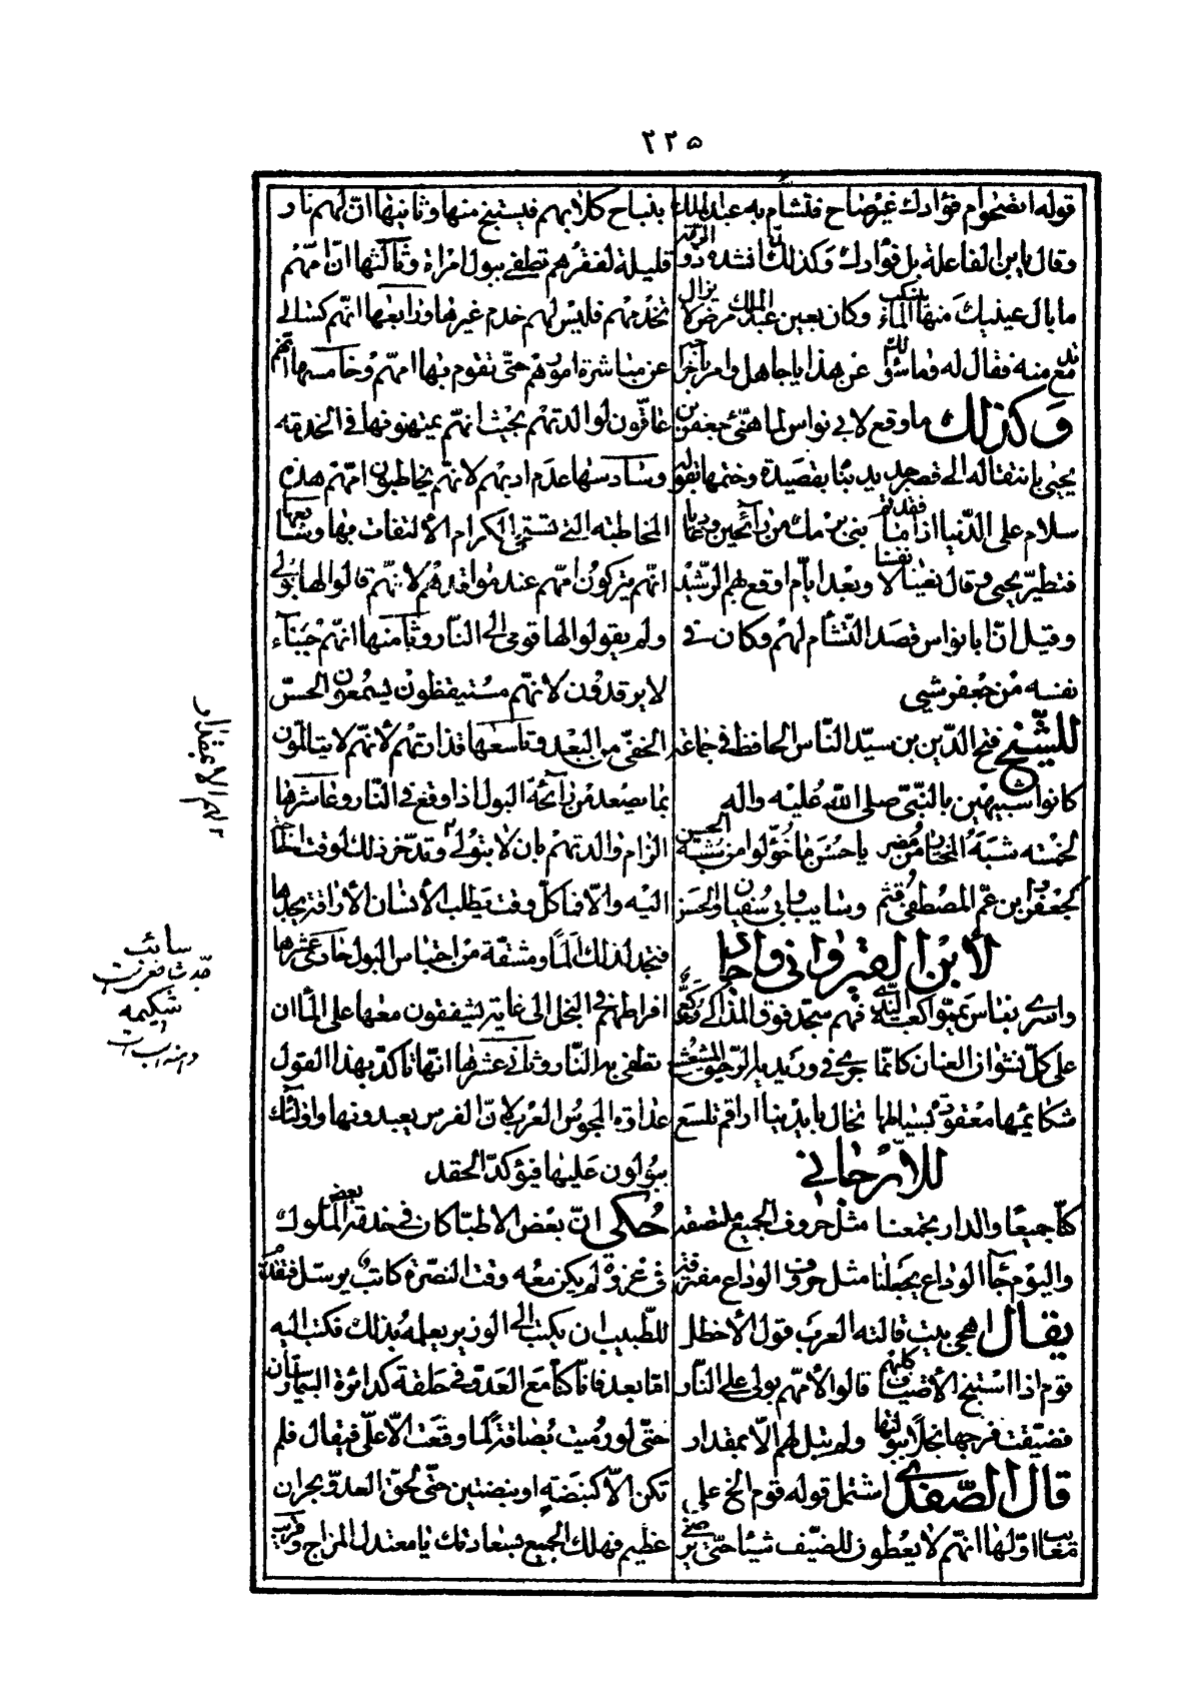 ۲۲۵
قوله اتصحوام فؤادك غير صاح فتشأم به عبد الملك
وقال يا ابن الفاعلة بل فؤادك وكذلك لمّا انشده ذو الرمّة
ما بال عينيك منها الماء ينسكب وكان بعين عبد الملك مرض لا يزال
تدمع منه فقال له وما سؤالك عن هذا يا جاهل وامر باخراجه
وكذلك ما وقع لابي نواس لما هنّى جعفر بن
يحيى بانتقاله الى قصر جديد بناه بقصيدة وختمها بقوله
سلام على الدّنيا اذا ما فقدتم بنى برمك من رآئحين وغاد
فتطيّر يحيى وقال نعيت لنا نفسنا وبعد ايّام اوقع بهم الرّشيد
وقيل انّ ابا نواس قصد التّشأم لهم وكان في
نفسه من جعفر شيئ
للشّيخ فتح الدّين بن سيّد النّاس الحافظ في جماعة
كانوا شبيهين بالنّبيّ صلى الله عليه واله
لخمسة شبه المختار من مضر يا حسن ما خوّلوا من شبهه الحسن
كجعفر وابن عمّ المصطفى قثم وسايب وابي سفيان والحسن
لابن القيرواني واجاد
على كلّ نشوان العنان كانّما جرى في وريديه الرّحيق المشعشع
شكائمها معقودة بسياطها تخال بايدينا اراقم تلسع
للارّجاني
كنّا جميعًا والدار تجمعنا مثل حروف الجميع ملتصقه
واليوم جآء الوداع يجعلنا مثل حروف الوداع مفترقه
يقال اهجى بيت قالته العرب قول الاخطل
قوم اذا استنبح الأضياف كلبهم قالوا لأمّهم بولى على النّار
فضيّقت فرجها بخلًا ببولتها ولم تبل لهم الّا بمقدار
قال الصّفدى اشتمل قوله قوم الخ على
معايب اوّلها انّهم لا يعطون للضّيف شيئا حتّى يرضى
بنباح كلابهم فيستنبح منها وثانيها انّ لهم نار
قليلة لفقرهم تطفى ببول امرأة وثالثها انّ امّهم
تخدمهم فليس لهم خدم غيرها ورابعها انهم كسالى
عن مباشرة امورهم حتّى تقوم بها امهم وخامسها انهم
عاقّون لوالدتهم بحيث انهم يمتهنونها في الخدمة
وسادسها عدم ادبهم لانهم يخاطبون امّهم هذه
المخاطبة التي تستحى الكرام الألتفات بها وسابعها
انّهم يتركون امّهم عند مواقدهم لانّهم قالوا لها بولى
ولم يقولوا لها قومى الى النار وثامنها انهم جبناء
لا يرقدون لانهم مستيقظون يسمعون الحسّ
الخفىّ من البعد وتاسعها قذارتهم لأنهم لا يتالّمون
بما يصعد من رآئحة البول اذا وقع في النّار وعاشرها
الزام والدتهم بان لا تبول وتدّخر ذلك لوقت الحاجة
اليه والّا فما كلّ وقت يطلب الأنسان الأراقة يجدها
فتجد لذلك ألمًا ومشقّة من احتباس البول حادي عشرها
افراطهم في البخل الى غاية يشفقون معها على الماء ان
تطفى به النّار وثاني عشرها انّها تأكد بهذا القول
عداوة المجوس للعرب لانّ الفرس يعبدونها واولئك
يبولون عليها فيؤكدّ الحقد
حكى انّ بعض الاطبّا كان في خدمة بعض الملوك
في غزوة لم يكن معه وقت النصرة كاتب يرسل فتقدّم
للطّبيب ان يكتب الى الوزير يعلمه بذلك فكتب اليه
امّا بعد فانّا كنّا مع العدوّ في حلقة كدائرة البيمارستان
حتّى لو رميت بصاقة لما وقعت الّا على قيفال فلم
تكن الّا كنبضة او نبضتين حتّى لحق العدوّ بحران
عظيم فهلك الجميع بسعادتك يا معتدل المزاج وقريب
سائب
جدّ شافعى است
شكيمه
دهنه اسب است